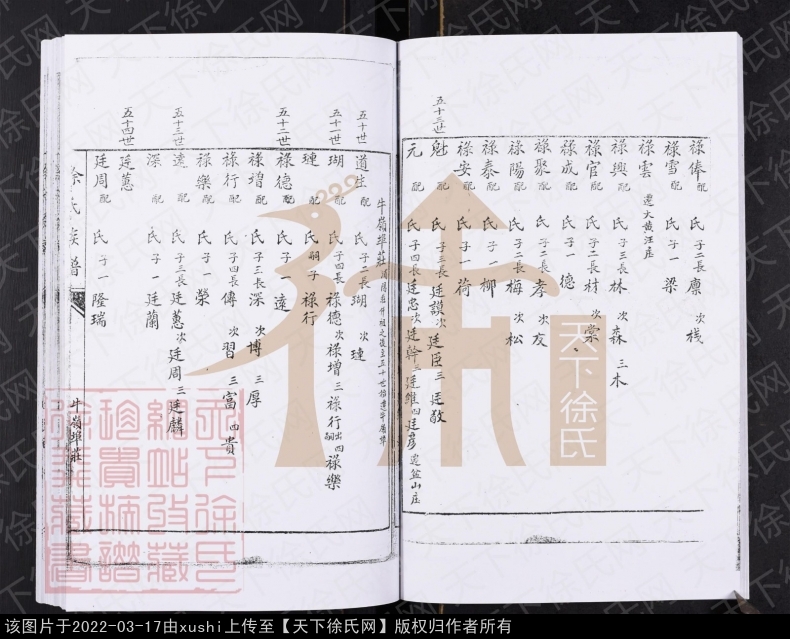 祿俸配 氏子二長廪 次棧
祿雪配 氏子一 梁
祿雲 遷大黄汪庄
祿興配 氏子三長林 次森 三木
祿官配 氏子二長材 次棠
祿成配 氏子一 德
祿聚配 氏子二長孝 次友
祿陽配 氏子二長梅 次松
祿泰配 氏子一 柳
祿安配 氏子一 荷
五十三世
魁配 氏子三長廷讃 次廷臣 三廷敬
元配 氏子四長廷忠 次廷幹 三廷維 四廷彦 遷盆山庄
牛嶺埠莊
五十世
道生配 氏子二長瑚 次璉
五十一世
瑚配 氏子四長祿德 次祿增 三祿行出嗣 四祿樂
璉配 氏嗣子祿行
五十二世
祿德配 氏子一 遠
祿增配 氏子三長深 次博 三厚
祿行配 氏子四長傳 次習 三富 四貴
祿樂配 氏子一 榮
五十三世
遠配 氏子三長廷蕙 次廷周 三廷麟
深配 氏子一 廷蘭
五十四世
廷蕙
廷周配 氏子一 隆瑞
徐氏族譜
牛嶺埠莊
天下徐氏
天下徐氏
網站收藏
珍貴譜
徐氏藏書
天下徐氏网
该图片于2022-03-17由xushi上传至【天下徐氏网】版权归作者所有